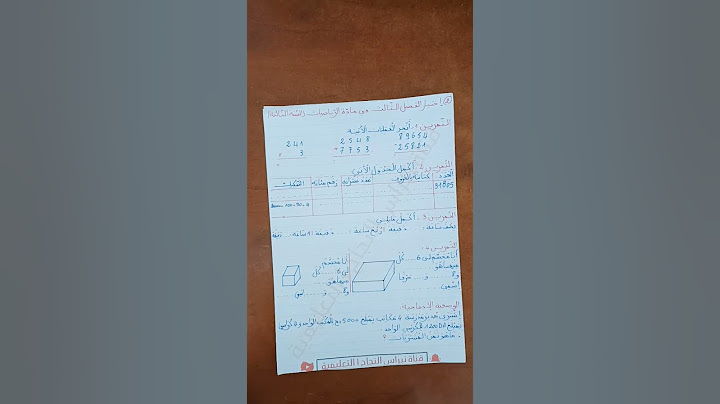 اختبار الفصل الثالث في مادة الرياضيات (السنة الثالثة)
التمرين 1: أنجز العمليات الآتية:
241 2548 89654
× 3 + 7753 - 25821
التمرين 2: أكمل الجدول الآتي
العدد كتابته بالحروف عدد عشراته رقم مئاته التفكيك
91805
التمرين 3: أكمل مايلي
نصف ساعة = ... دقيقة، ربع ساعة ... دقيقة، ساعة ... دقيقة
التمرين 4:
أنا مجسم لي 6 ..... كل
و 8 ..... و ..... حرفا
أنا مجسم
لي 6 ..... كل
و 8 ..... و .....
الوضعية الإدماجية:
اشترى مدير مدرسة 4 مكاتب بمبلغ 5000 دج للمكتب الواحد و 6 كراسي
بمبلغ 1200 DA للكرسي الواحد.
- ماهو ثمن المشتريات ؟
قناة نبراس النجاح التعليمية